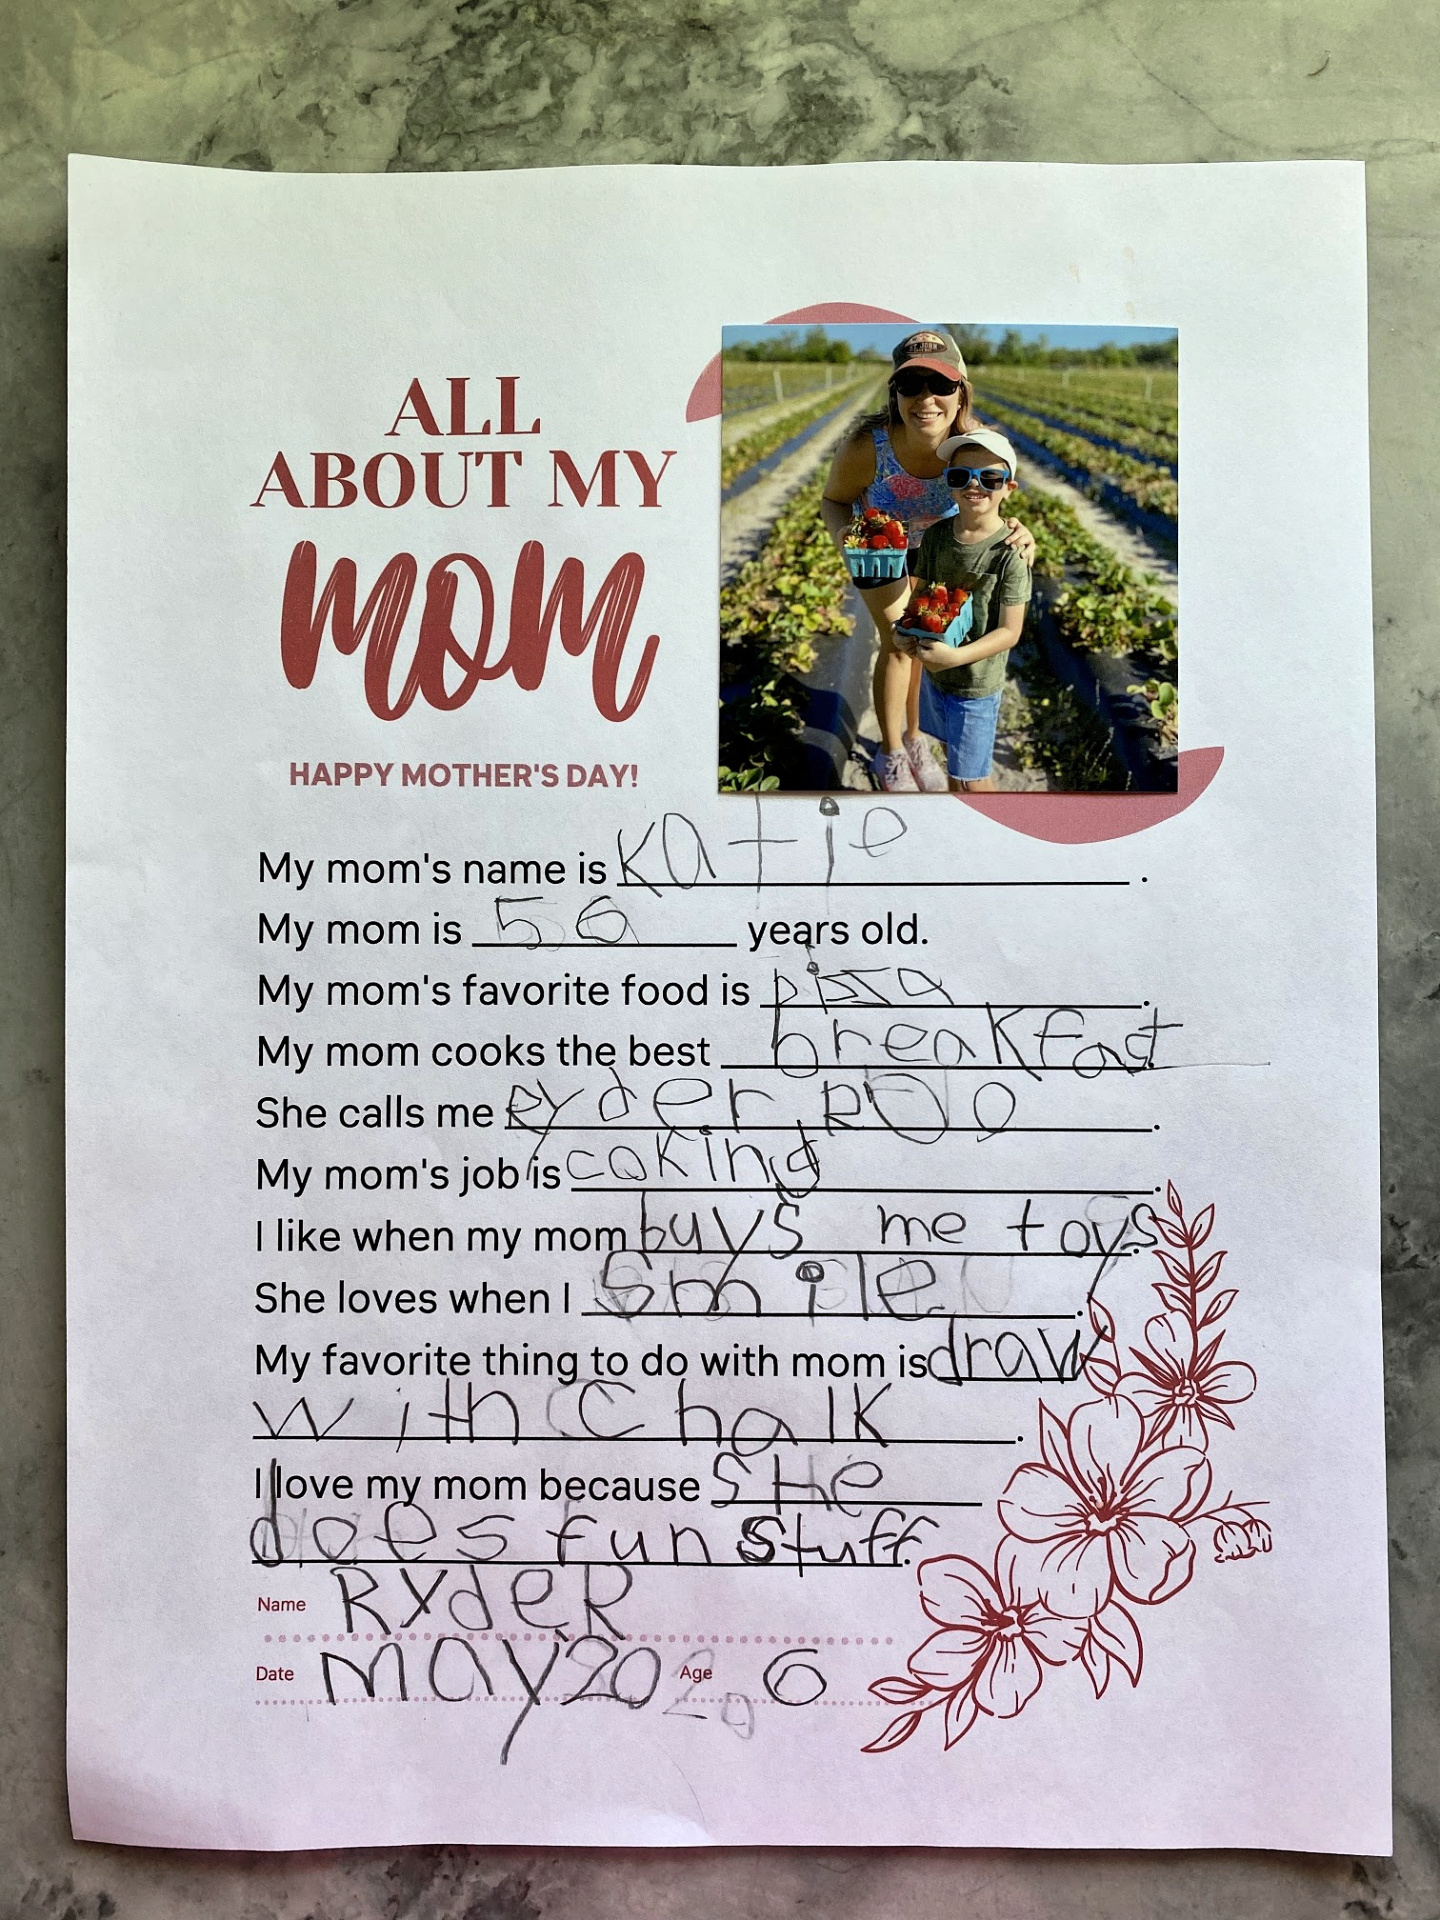 ALL
ABOUT MY
mom
HAPPY MOTHER'S DAY!
ST. JOHN
My mom's name is Katie.
My mom is 56 years old.
My mom's favorite food is pizza.
My mom cooks the best breakfast
She calls me Ryder ROO.
My mom's job is cokind.
I like when my mom buys me toys.
She loves when I Smile.
My favorite thing to do with mom is draw
with Chalk.
I love my mom because SHe
does fun stuff.
Name RydeR
Date May 20 Age 6